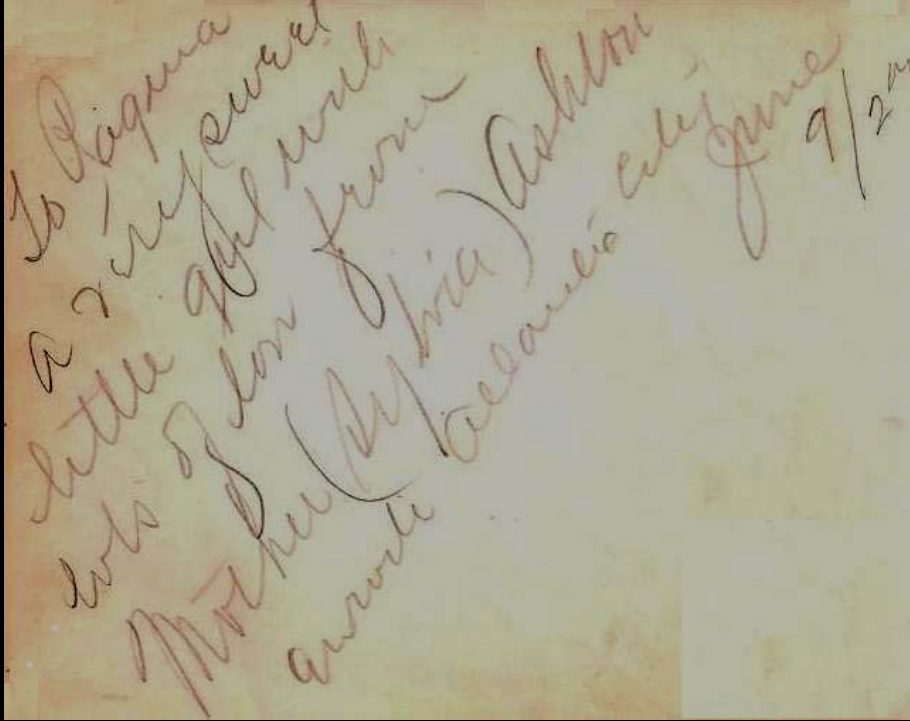 To Ragma
a very sweet
little girl with
lots of love from
Mother (Sylvia) Ashton
Atlantic City
June 9/2